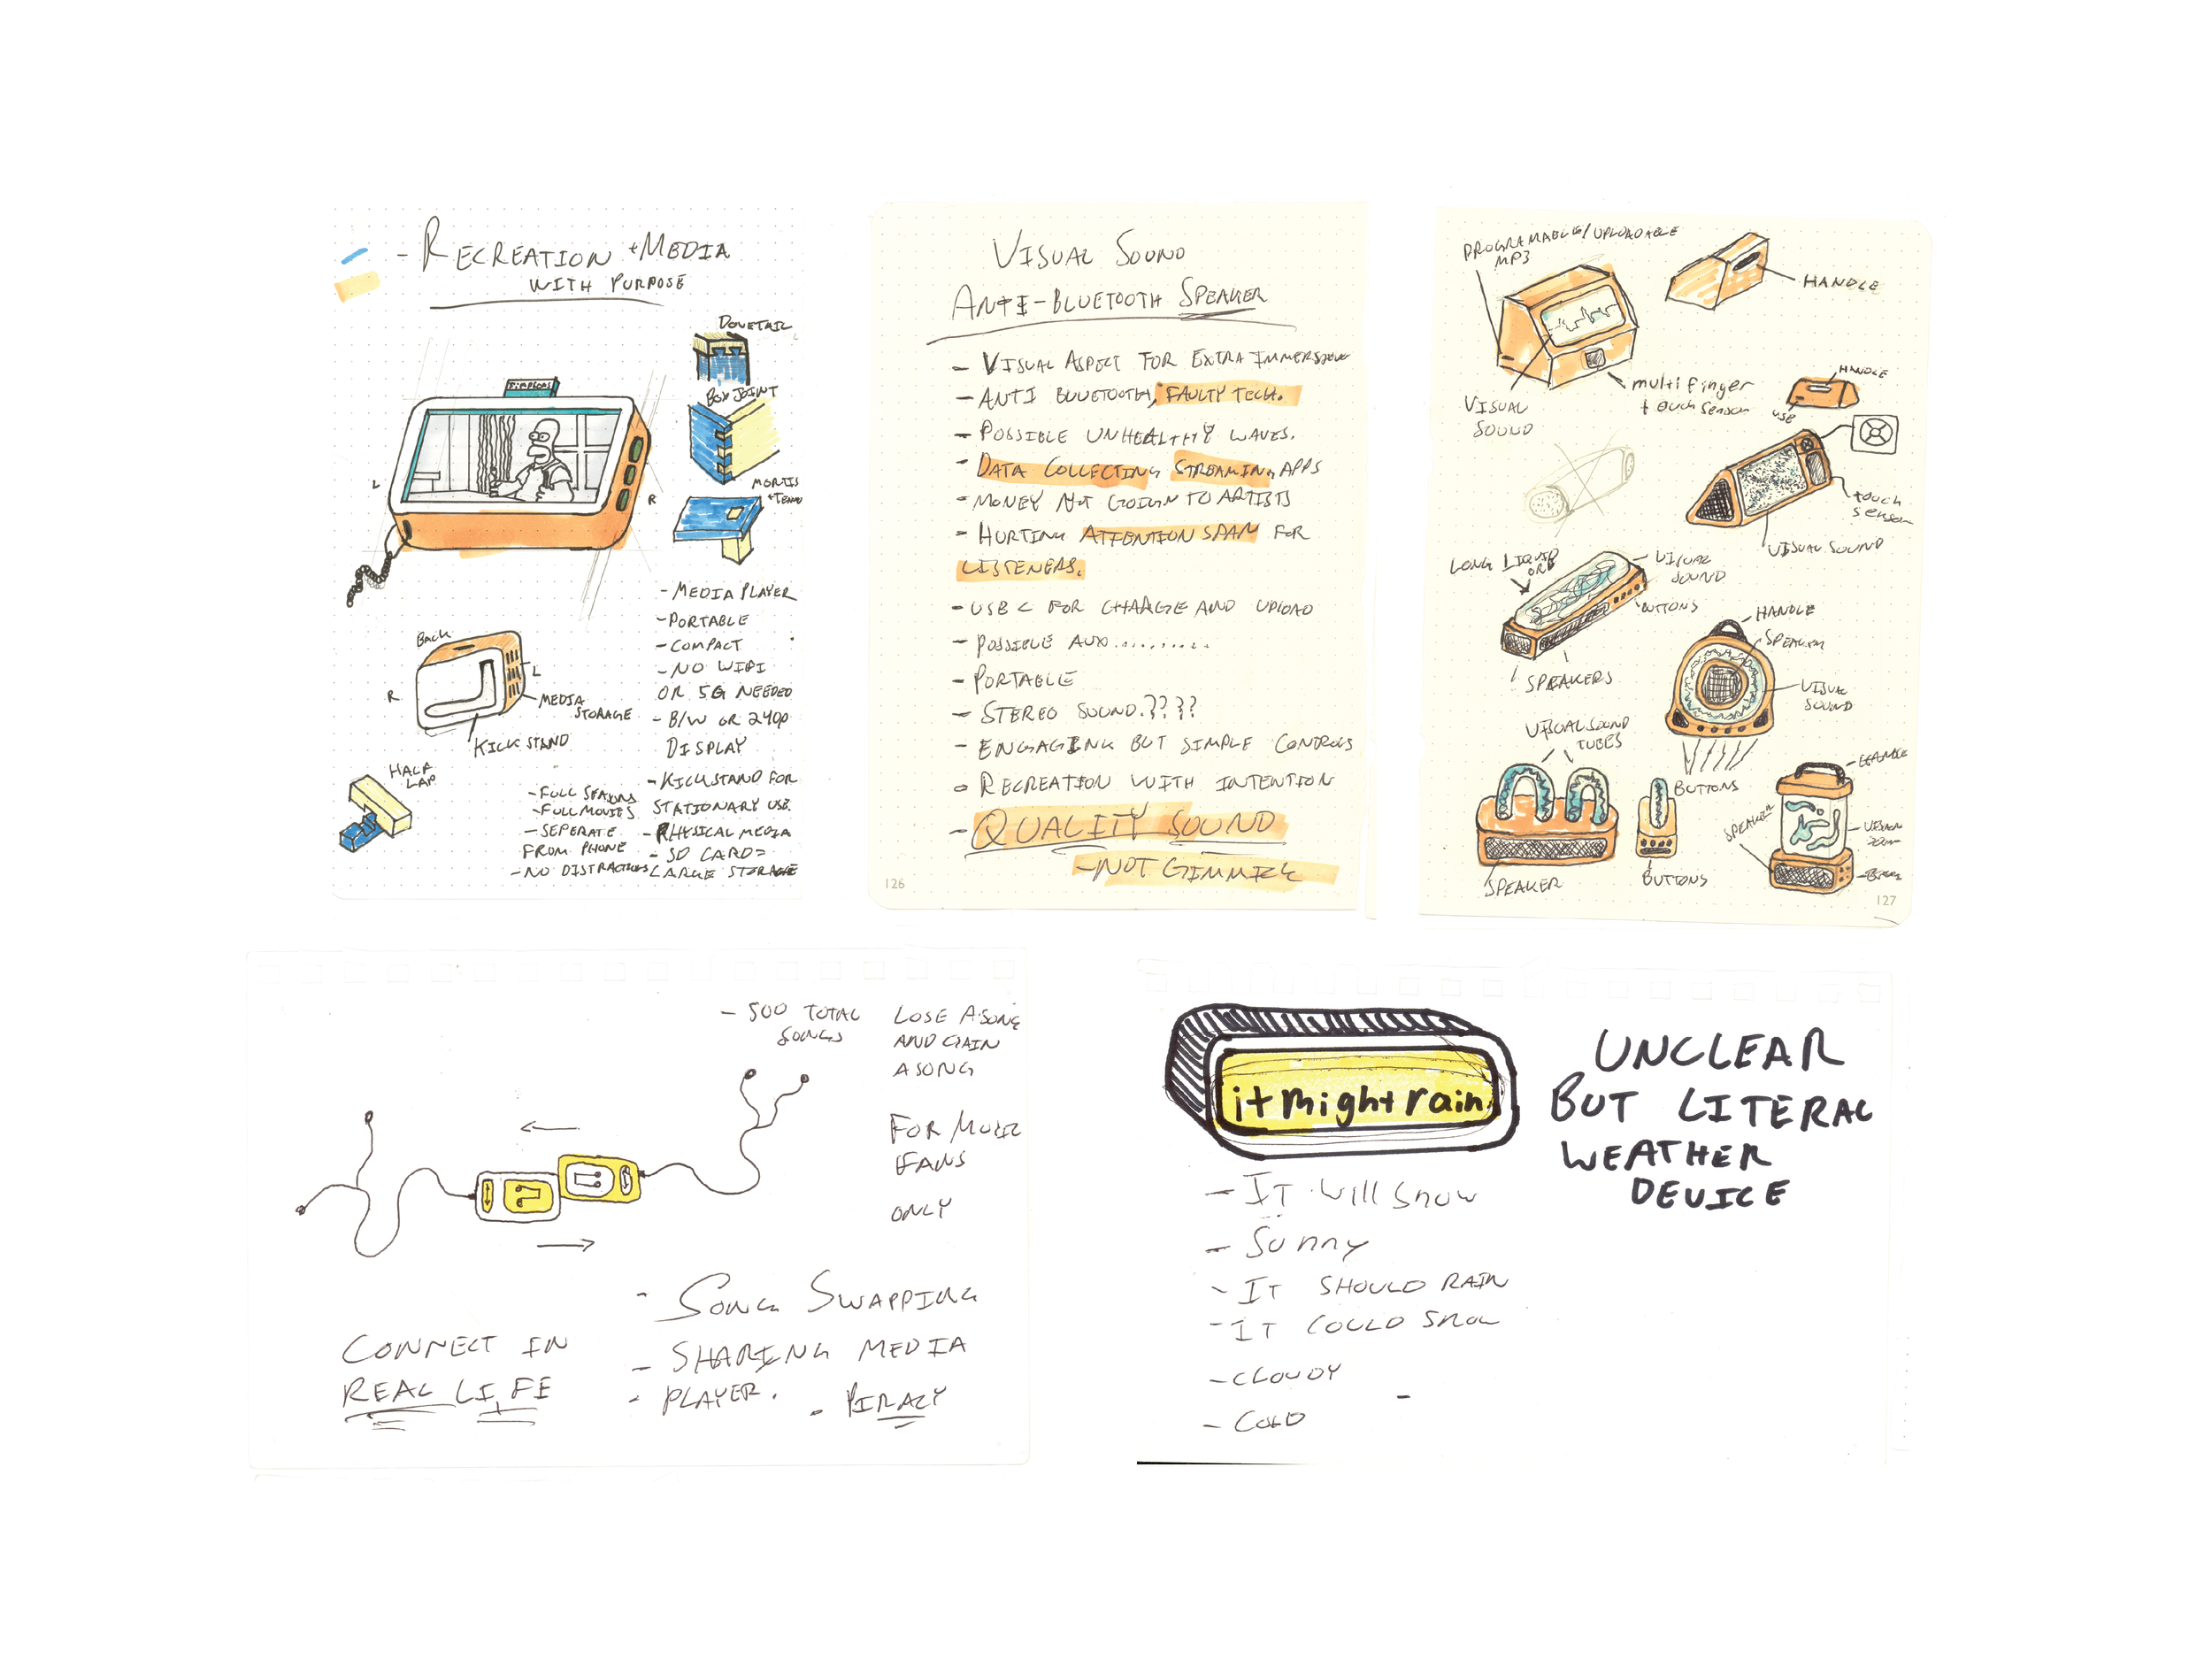 - RECREATION + MEDIA
WITH PURPOSE
DOVETAIL
BOX JOINT
MORTIS
+ TENO
L
R
BACK
R
L
MEDIA
STORAGE
KICK STAND
HALF
LAP
- MEDIA PLAYER
- PORTABLE
- COMPACT
- NO WIFI
OR 5G NEEDED
- B/W OR 240p
DISPLAY
- KICKSTAND FOR
STATIONARY USE.
- PHYSICAL MEDIA
- SD CARD =
LARGE STORAGE
- FULL SEASONS
- FULL MOVIES
- SEPERATE
FROM PHONE
- NO DISTRACTIONS
VISUAL SOUND
ANTI-BLUETOOTH SPEAKER
- VISUAL ASPECT FOR EXTRA IMMERSION
- ANTI BLUETOOTH, FAULTY TECH.
- POSSIBLE UNHEALTHY WAVES.
- DATA COLLECTING STREAMING APPS
- MONEY NOT GOING TO ARTISTS
- HURTING ATTENTION SPAN FOR
LISTENERS.
- USB C FOR CHARGE AND UPLOAD
- POSSIBLE AUX..........
- PORTABLE
- STEREO SOUND.????
- ENGAGING BUT SIMPLE CONTROLS
- RECREATION WITH INTENTION
- QUALITY SOUND
- NOT GIMMICK
126
PROGRAMABLE/UPLOADABLE
MP3
HANDLE
VISUAL
SOUND
multi finger
touch sensor
HANDLE
USB
touch
sensor
VISUAL SOUND
LONG LIQUID
ORB
VISUAL
SOUND
BUTTONS
SPEAKERS
HANDLE
SPEAKER
VISUAL
SOUND
BUTTONS
VISUAL SOUND
TUBES
SPEAKER
BUTTONS
HANDLE
SPEAKER
127
- 500 TOTAL
SONGS
LOSE A SONG
AND GAIN
A SONG
FOR MUSIC
FANS
ONLY
CONNECT IN
REAL LIFE
- SONG SWAPPING
- SHARING MEDIA
- PLAYER.
- PIRACY
it might rain.
UNCLEAR
BUT LITERAL
WEATHER
DEVICE
- IT WILL SNOW
- SUNNY
- IT SHOULD RAIN
- IT COULD SNOW
- CLOUDY
- COLD